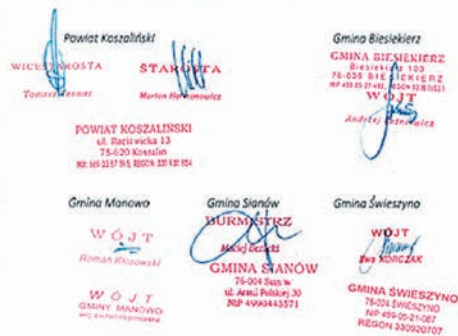 Powiat Koszaliński
WICESTAROSTA
Tomasz Tesmer
STAROSTA
Marian Hermanowicz
POWIAT KOSZALIŃSKI
ul. Racławicka 13
75-620 Koszalin
Gmina Biesiekierz
GMINA BIESIEKIERZ
Biesiekierz 103
76-039 BIESIEKIERZ
WÓJT
Andrzej Leśniewicz
Gmina Manowo
WÓJT
Roman Kłosowski
WÓJT
GMINY MANOWO
Gmina Sianów
BURMISTRZ
Maciej Berlicki
GMINA SIANÓW
76-004 Sianów
ul. Armii Polskiej 30
NIP 4990443571
Gmina Świeszyno
WÓJT
Ewa KORCZAK
GMINA ŚWIESZYNO
76-024 ŚWIESZYNO
NIP 499-05-21-087
REGON 330920707